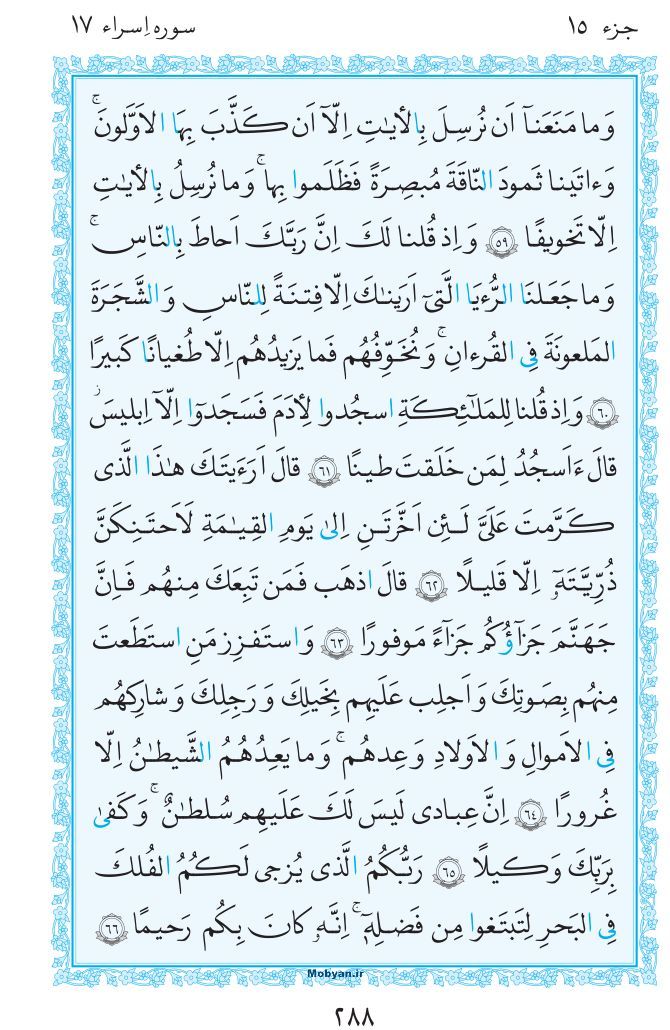 جزء ١٥
سوره اِسراء ١٧
وَ ما مَنَعَنآ اَن نُرسِلَ بِالأيٰتِ اِلّآ اَن كَذَّبَ بِهَا الاَوَّلونَ ۚ
وَ ءاتَينا ثَمودَ النّاقَةَ مُبصِرَةً فَظَلَموا بِها ۚ وَ ما نُرسِلُ بِالأيٰتِ
اِلّا تَخويفًا ﴿٥٩﴾ وَ اِذ قُلنا لَكَ اِنَّ رَبَّكَ اَحاطَ بِالنّاسِ ۚ
وَ ما جَعَلنَا الرُّءيَا الَّتىٓ اَرَينٰكَ اِلّا فِتنَةً لِلنّاسِ وَ الشَّجَرَةَ
المَلعونَةَ فِى القُرءانِ ۚ وَ نُخَوِّفُهُم فَما يَزيدُهُم اِلّا طُغيانًا كَبيرًا
﴿٦٠﴾ وَ اِذ قُلنا لِلمَلٰٓئِكَةِ اسجُدوا لِأدَمَ فَسَجَدوٓا اِلّآ اِبليسَ
قالَ ءَاَسجُدُ لِمَن خَلَقتَ طينًا ﴿٦١﴾ قالَ اَرَءَيتَكَ هٰذَا الَّذى
كَرَّمتَ عَلَىَّ لَئِن اَخَّرتَنِ اِلىٰ يَومِ القِيٰمَةِ لَاَحتَنِكَنَّ
ذُرِّيَّتَهٗٓ اِلّا قَليلًا ﴿٦٢﴾ قالَ اذهَب فَمَن تَبِعَكَ مِنهُم فَاِنَّ
جَهَنَّمَ جَزآؤُكُم جَزآءً مَوفورًا ﴿٦٣﴾ وَ استَفزِز مَنِ استَطَعتَ
مِنهُم بِصَوتِكَ وَ اَجلِب عَلَيهِم بِخَيلِكَ وَ رَجِلِكَ وَ شارِكهُم
فِى الاَموالِ وَ الاَولادِ وَ عِدهُم ۚ وَ ما يَعِدُهُمُ الشَّيطٰنُ اِلّا
غُرورًا ﴿٦٤﴾ اِنَّ عِبادى لَيسَ لَكَ عَلَيهِم سُلطٰنٌ ۚ وَ كَفىٰ
بِرَبِّكَ وَكيلًا ﴿٦٥﴾ رَبُّكُمُ الَّذى يُزجى لَكُمُ الفُلكَ
فِى البَحرِ لِتَبتَغوا مِن فَضلِهٖٓ ۚ اِنَّهٗ كانَ بِكُم رَحيمًا ﴿٦٦﴾
Mobyan.ir
٢٨٨